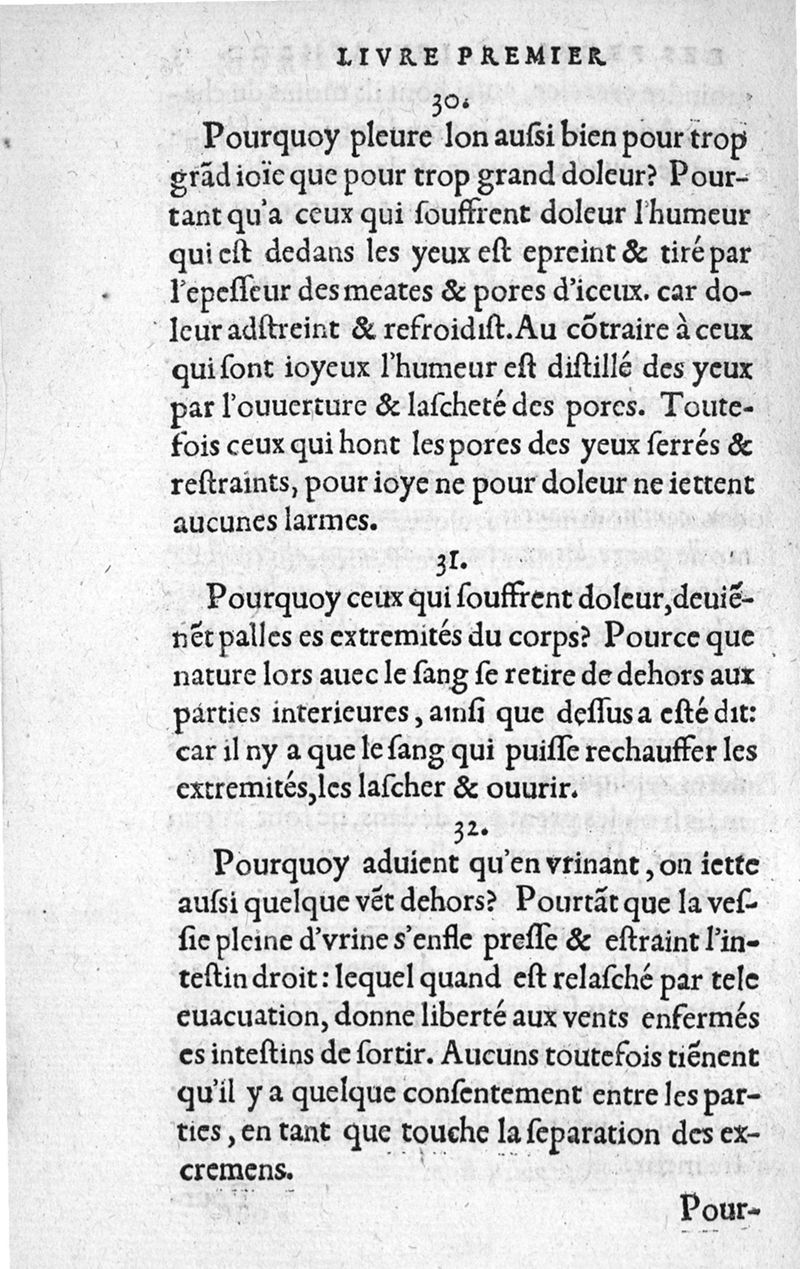 LIVRE PREMIER
30.
Pourquoy pleure lon auſſi bien pour trop
grãd ioïe que pour trop grand doleur? Pour-
tant qu'a ceux qui ſouffrent doleur l'humeur
qui eſt dedans les yeux eſt epreint & tiré par
l'epeſſeur des meates & pores d'iceux. car do-
leur adſtreint & refroidiſt. Au cõtraire à ceux
qui ſont ioyeux l'humeur eſt diſtillé des yeux
par l'ouuerture & laſcheté des pores. Toute-
fois ceux qui hont les pores des yeux ſerrés &
reſtraints, pour ioye ne pour doleur ne iettent
aucunes larmes.
31.
Pourquoy ceux qui ſouffrent doleur, deuiẽ-
nẽt palles es extremités du corps? Pource que
nature lors auec le ſang ſe retire de dehors aux
parties interieures, ainſi que deſſus a eſté dit:
car il ny a que le ſang qui puiſſe rechauffer les
extremités, les laſcher & ouurir.
32.
Pourquoy aduient qu'en vrinant, on iette
auſsi quelque vẽt dehors? Pourtãt que la veſ-
ſie pleine d'vrine s'enfle preſſe & eſtraint l'in-
teſtin droit: lequel quand eſt relaſché par tele
euacuation, donne liberté aux vents enfermés
es inteſtins de ſortir. Aucuns toutefois tiẽnent
qu'il y a quelque conſentement entre les par-
ties, en tant que touche la ſeparation des ex-
cremens.
Pour-